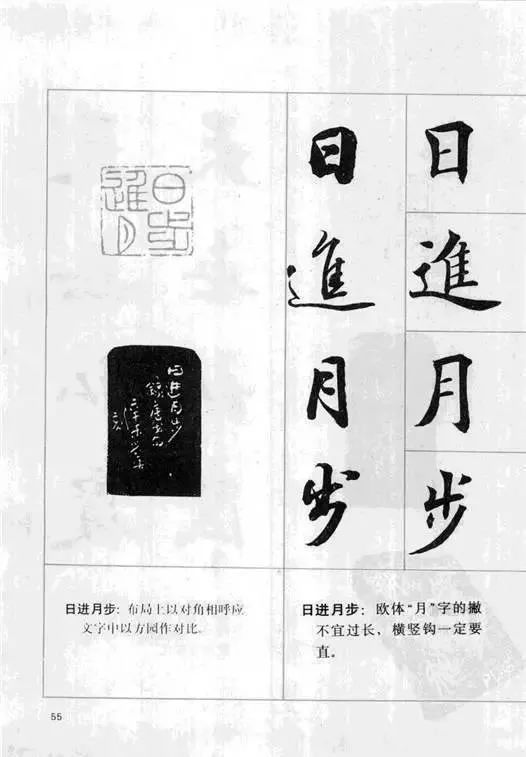 日
進
月
步
日
進
月
步
日步
進月
日进月步
日进月步：布局上以对角相呼应
文字中以方园作对比。
日进月步：欧体“月”字的撇
不宜过长，横竖钩一定要
直。
55